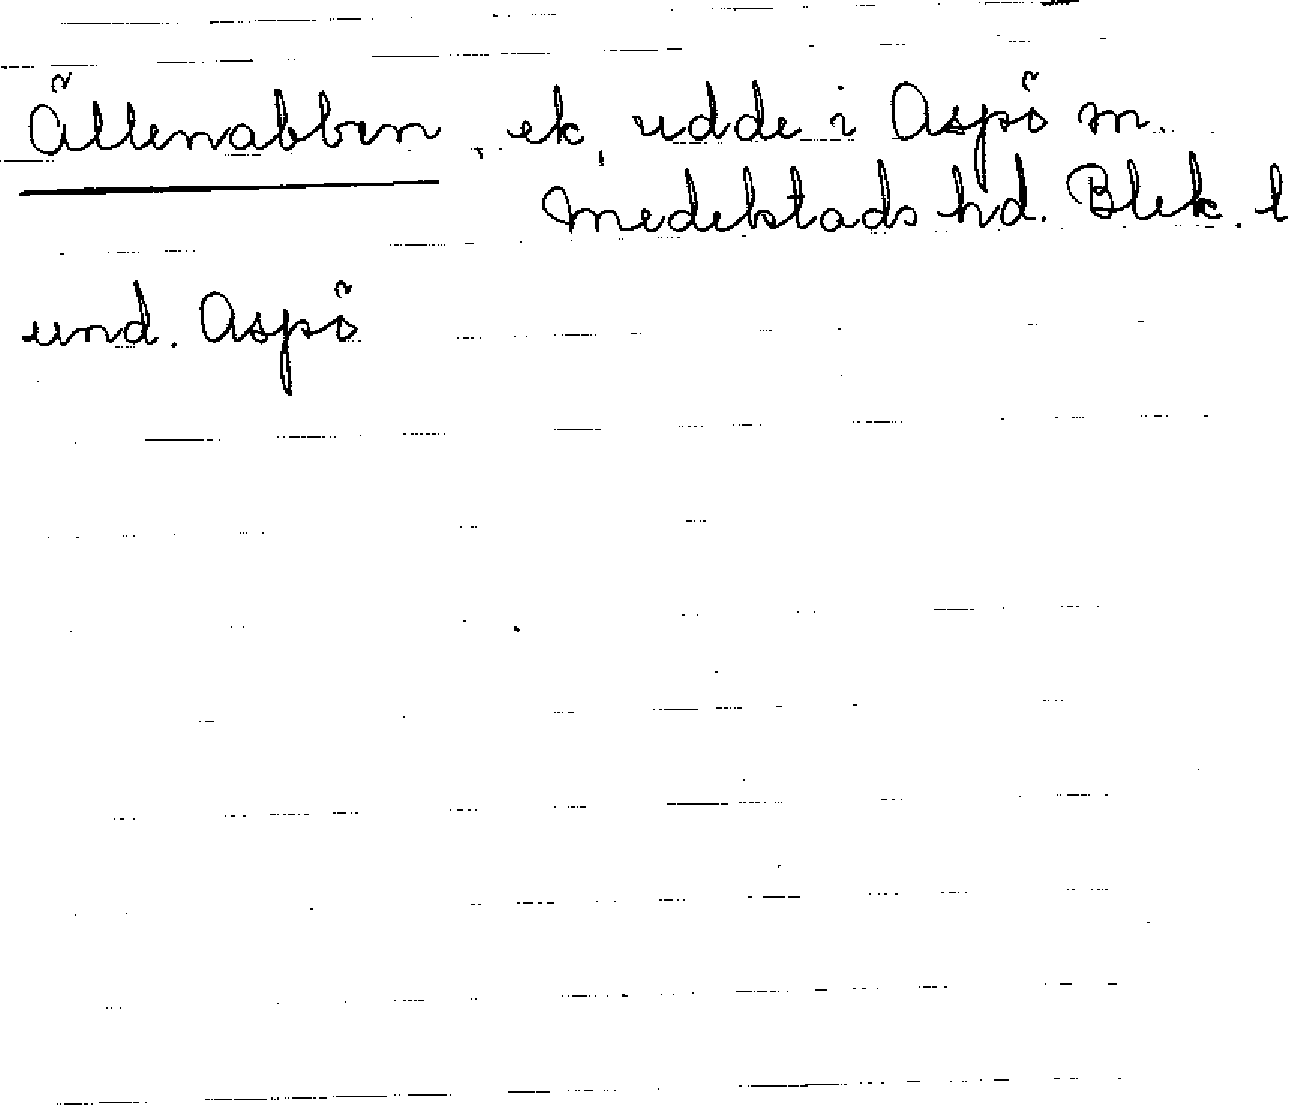 Ällenabben, ek, udde i Aspö sn.
Medelstads hd. Blek. l
und. Aspö